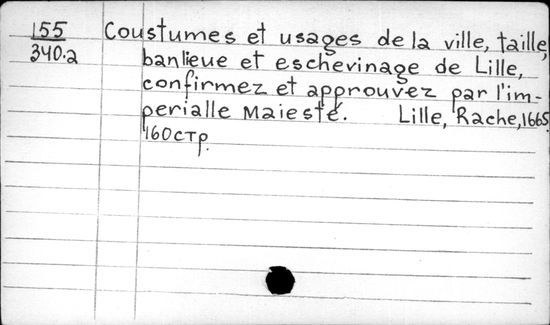 155 Coustumes et usages de la ville, taille,
340.2 banlieue et eschevinage de Lille,
confirmez et approuvez par l'im-
perialle Maiesté. Lille, Rache, 1665.
160 стр.